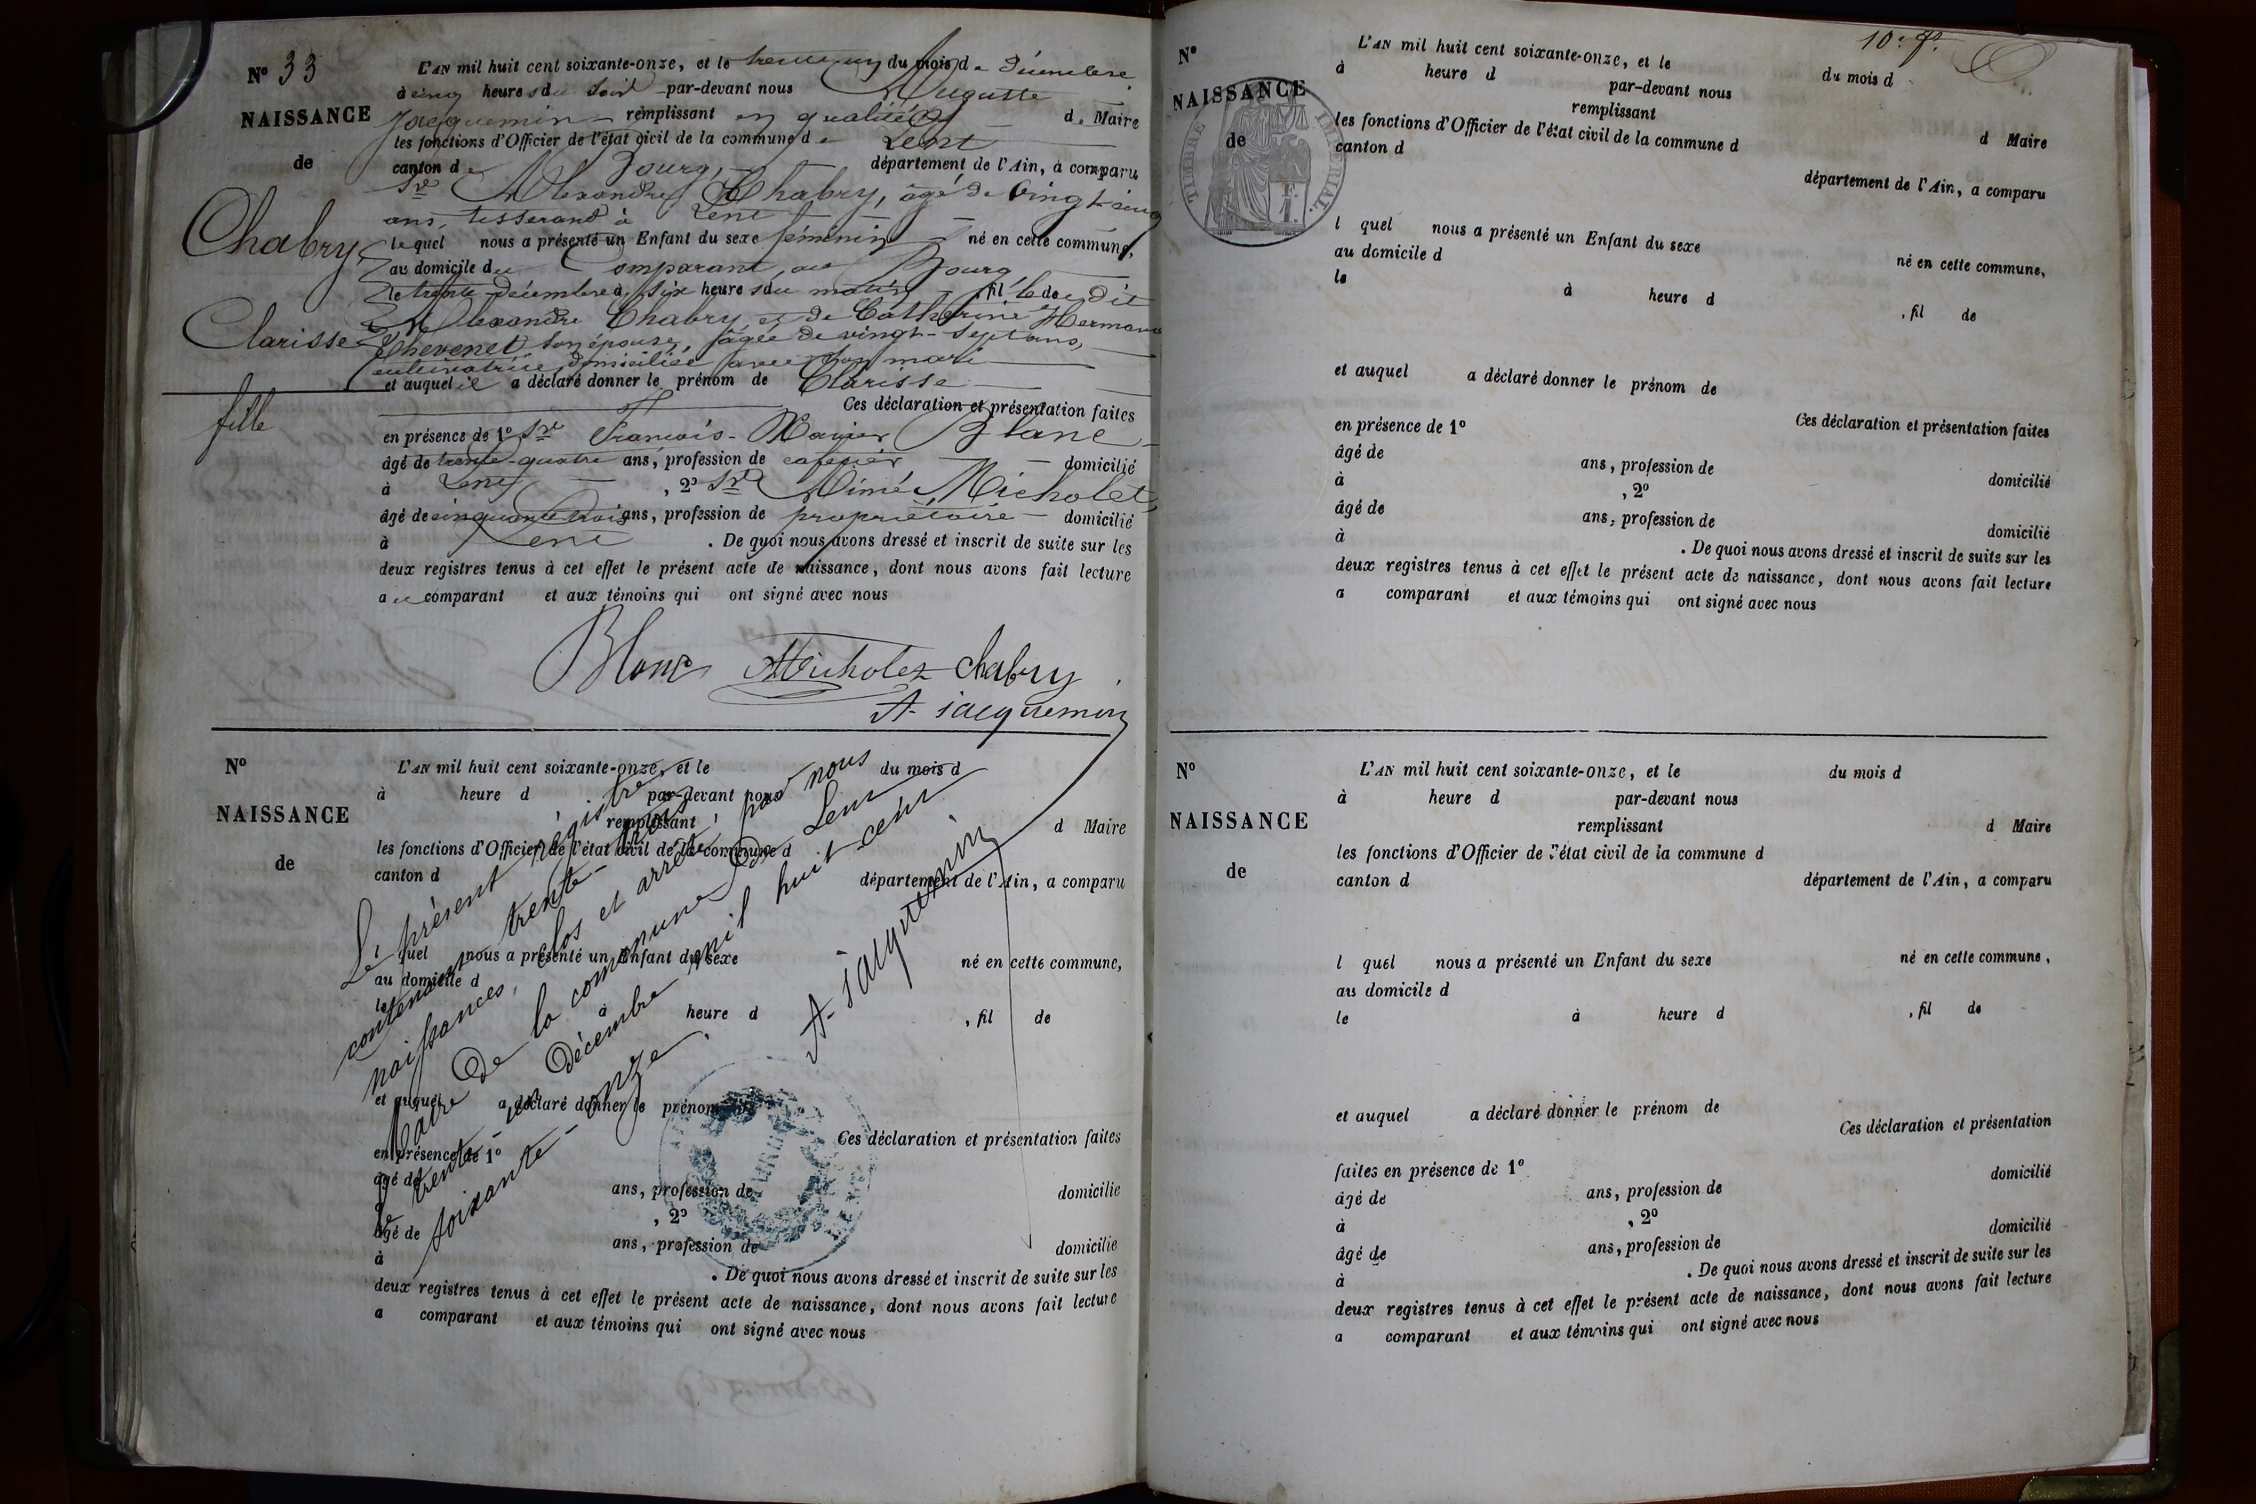 N° 33
NAISSANCE
de
Chabry
Clarisse
fille
L'AN mil huit cent soixante-onze, et le trente-un du mois de Décembre
à cinq heures du soir par-devant nous Auguste
Jacquemin remplissant en qualité de Maire
les fonctions d'Officier de l'état civil de la commune de Lent
canton de Bourg, département de l'Ain, a comparu
Sre Alexandre Chabry, âgé de vingt-cinq
ans, tisserand à Lent
lequel nous a présenté un Enfant du sexe féminin né en cette commune,
au domicile du Comparant, au Bourg,
le trente décembre à six heures du matin, fille de dit
Alexandre Chabry et de Catherine Hermance
Chevenet son épouse, âgée de vingt-sept ans,
cultivatrice, domiciliée avec son mari
et auquel il a déclaré donner le prénom de Clarisse
Ces déclaration et présentation faites
en présence de 1° Sre François-Xavier Blanc
âgé de trente-quatre ans, profession de cafetier domicilié
à Lent, 2° Sre Aimé Micholet,
âgé de cinquante trois ans, profession de propriétaire domicilié
à Lent. De quoi nous avons dressé et inscrit de suite sur les
deux registres tenus à cet effet le présent acte de naissance, dont nous avons fait lecture
au comparant et aux témoins qui ont signé avec nous
Blanc Micholet Chabry
A. Jacquemin
N°
NAISSANCE
de
L'AN mil huit cent soixante-onze, et le du mois d
à heure d par-devant nous
remplissant d Maire
les fonctions d'Officier de l'état civil de la commune d
canton d département de l'Ain, a comparu
l quel nous a présenté un Enfant du sexe né en cette commune,
au domicile d
le à heure d , fil de
et auquel a déclaré donner le prénom de
Ces déclaration et présentation faites
en présence de 1°
âgé de ans, profession de domicilié
à , 2°
âgé de ans, profession de domicilié
à . De quoi nous avons dressé et inscrit de suite sur les
deux registres tenus à cet effet le présent acte de naissance, dont nous avons fait lecture
a comparant et aux témoins qui ont signé avec nous
Le présent régistre
contenant trente-trois
naissances, clos et arrêté, par nous
Maire de la commune de Lent
le trente-un Décembre mil huit-cent
soixante-onze.
A. Jacquemin
10e fo.
N°
NAISSANCE
de
TIMBRE IMPERIAL
L'AN mil huit cent soixante-onze, et le du mois d
à heure d par-devant nous
remplissant d Maire
les fonctions d'Officier de l'état civil de la commune d
canton d département de l'Ain, a comparu
l quel nous a présenté un Enfant du sexe né en cette commune,
au domicile d
le à heure d , fil de
et auquel a déclaré donner le prénom de
Ces déclaration et présentation faites
en présence de 1°
âgé de ans, profession de domicilié
à , 2°
âgé de ans, profession de domicilié
à . De quoi nous avons dressé et inscrit de suite sur les
deux registres tenus à cet effet le présent acte de naissance, dont nous avons fait lecture
a comparant et aux témoins qui ont signé avec nous
N°
NAISSANCE
de
L'AN mil huit cent soixante-onze, et le du mois d
à heure d par-devant nous
remplissant d Maire
les fonctions d'Officier de l'état civil de la commune d
canton d département de l'Ain, a comparu
l quel nous a présenté un Enfant du sexe né en cette commune,
au domicile d
le à heure d , fil de
et auquel a déclaré donner le prénom de
Ces déclaration et présentation
faites en présence de 1° domicilié
âgé de ans, profession de
à , 2° domicilié
âgé de ans, profession de
à . De quoi nous avons dressé et inscrit de suite sur les
deux registres tenus à cet effet le présent acte de naissance, dont nous avons fait lecture
a comparant et aux témoins qui ont signé avec nous